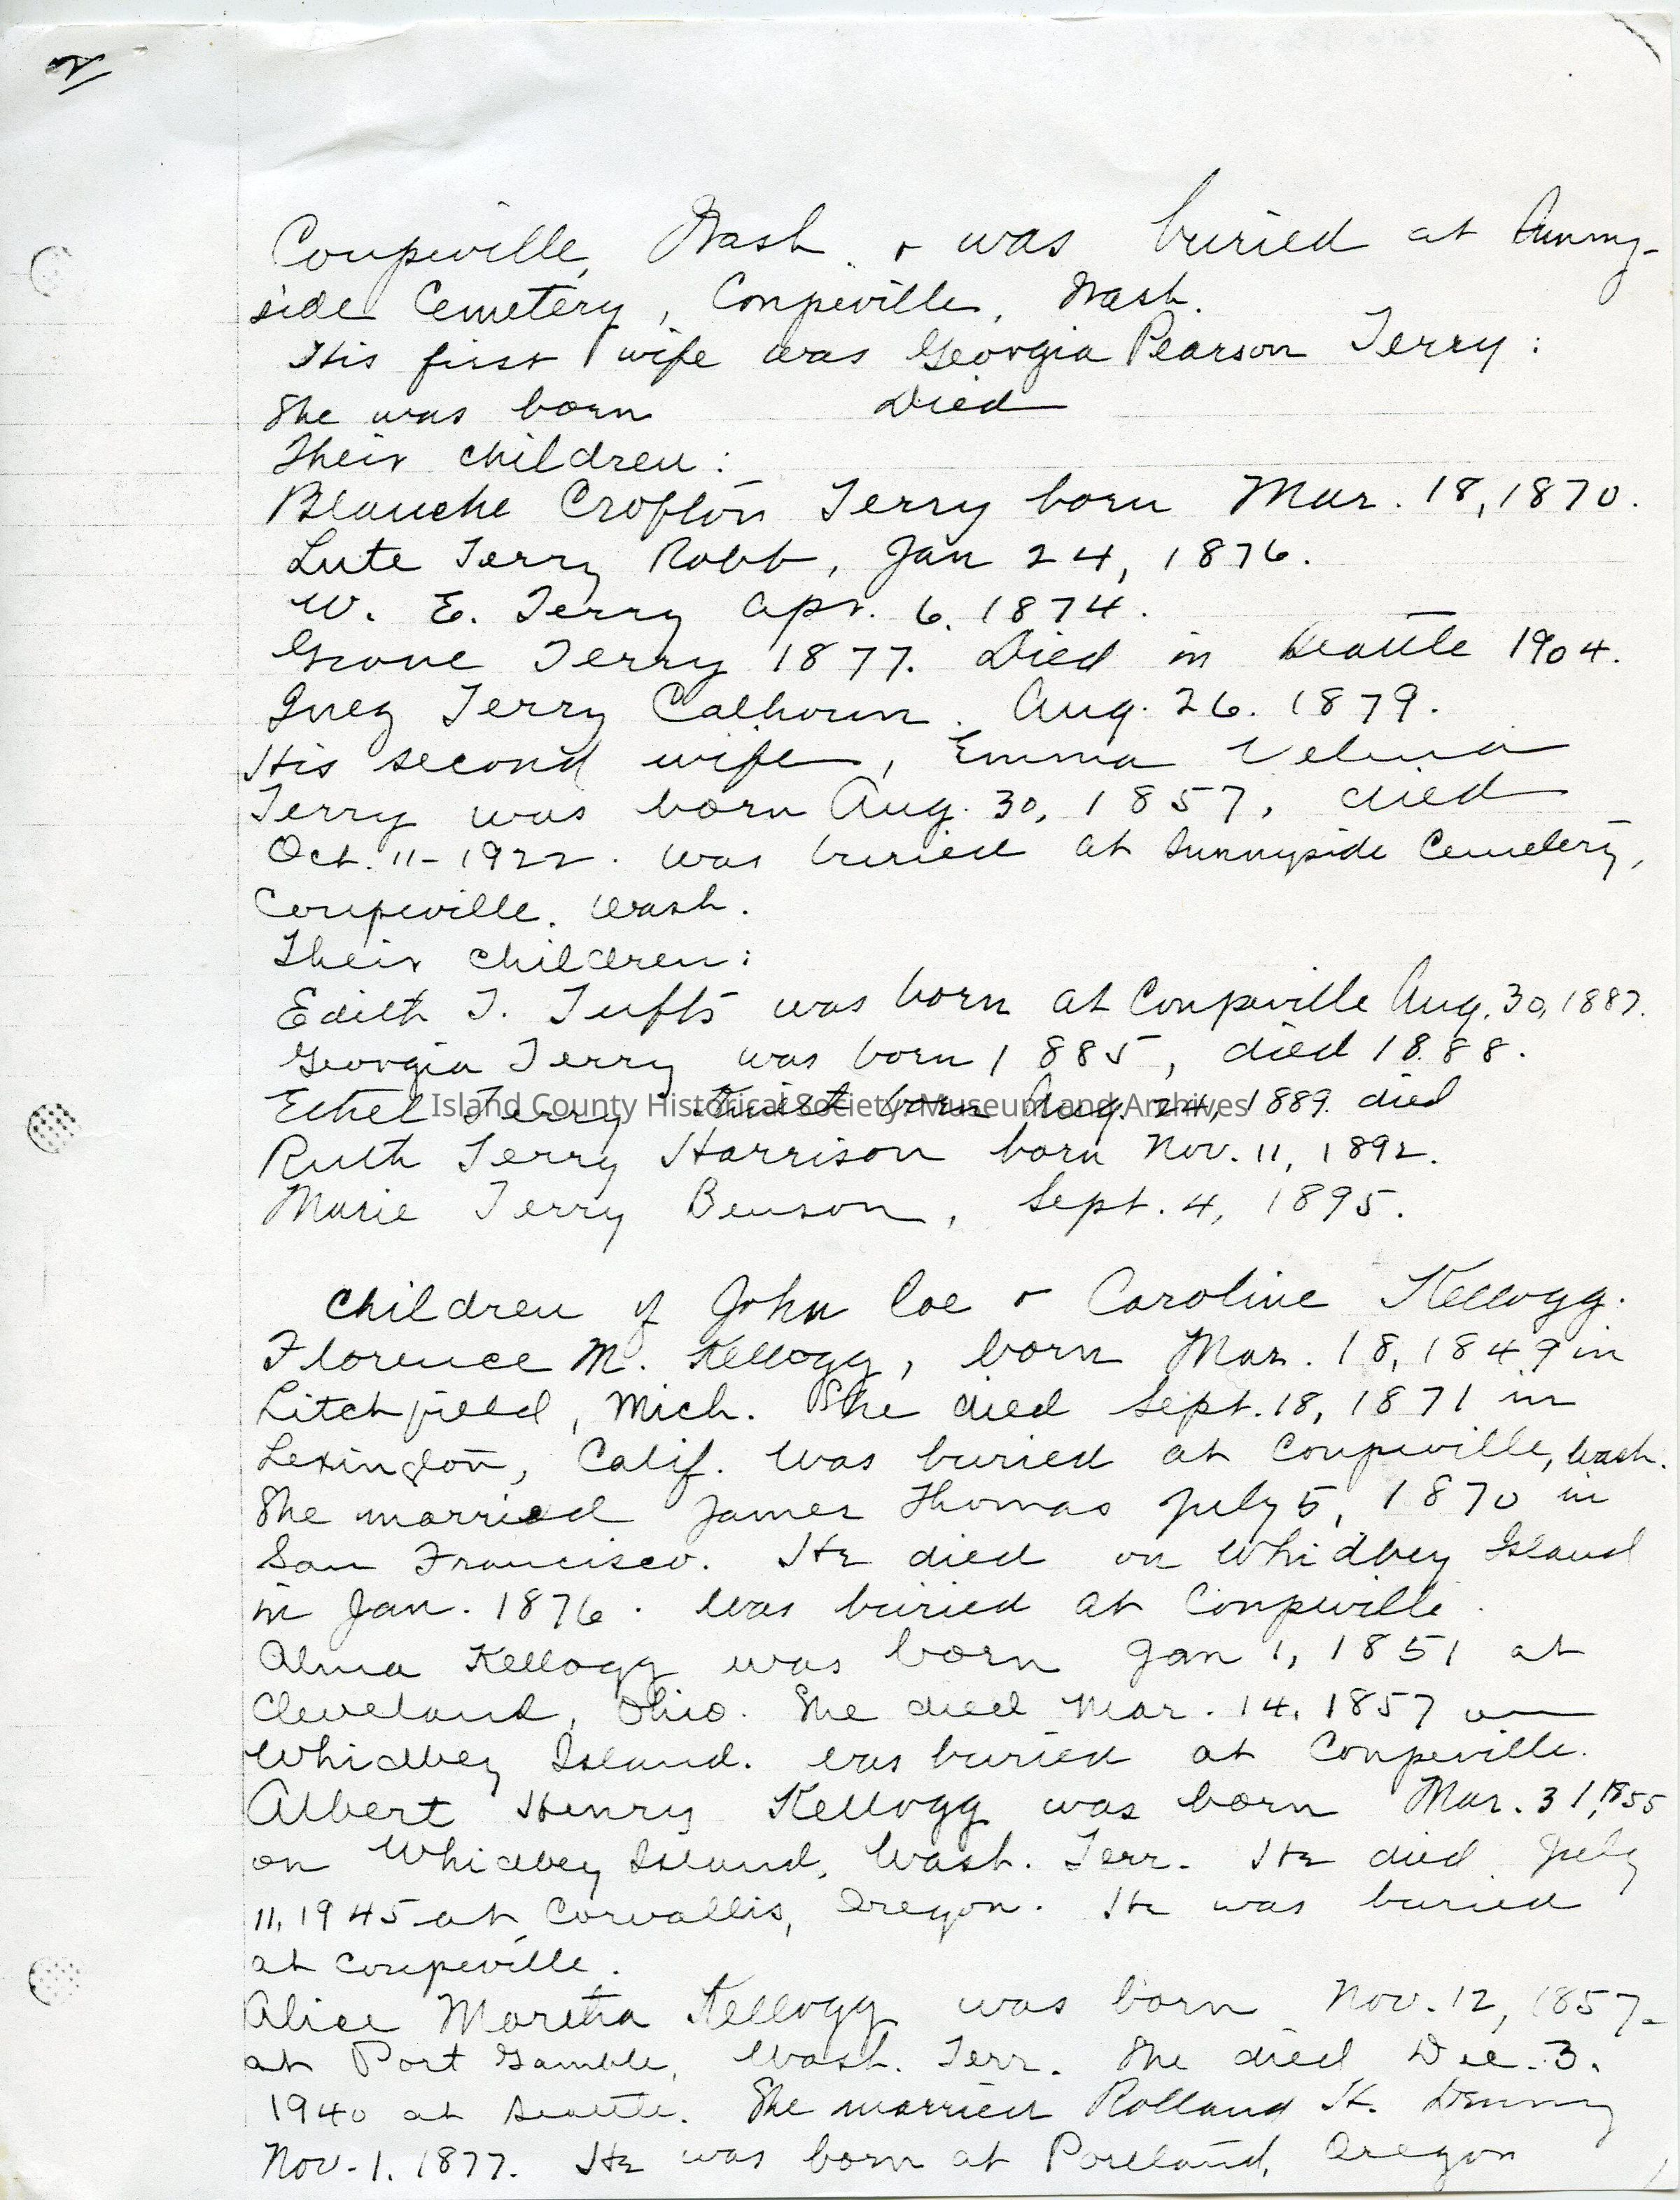 Coupeville, Wash. & was buried at Sunny-
side Cemetery, Coupeville, Wash.
His first wife was Georgia Pearson Terry:
She was born Died
Their children:
Blanche Crofton Terry born Mar. 18, 1870.
Lute Terry Robb, Jan 24, 1876.
W. E. Terry Apr. 6, 1874.
Grove Terry 1877. Died in Seattle 1904.
Inez Terry Calhoun. Aug. 26. 1879.
His second wife, Emma Velma
Terry was born Aug. 30, 1857, died
Oct. 11-1922. was buried at Sunnyside Cemetery,
Coupeville. Wash.
Their children:
Edith T. Tufts was born at Coupeville Aug. 30, 1887.
Georgia Terry was born 1885, died 1888.
Ethel Terry born Aug. 24, 1889. died
Island County Historical Society, Museum and Archives
Ruth Terry Harrison born Nov. 11, 1892.
Marie Terry Benson, Sept. 4, 1895.
Children of John Coe & Caroline Kellogg.
Florence M. Kellogg, born Mar. 18, 1849 in
Litchfield, Mich. She died Sept. 18, 1871 in
Lexington, Calif. Was buried at Coupeville, Wash.
She married James Thomas July 5, 1870 in
San Francisco. He died on Whidbey Island
in Jan. 1876. Was buried at Coupeville.
Alma Kellogg was born Jan 1, 1851 at
Cleveland, Ohio. She died Mar. 14, 1857 on
Whidbey Island. Was buried at Coupeville.
Albert Henry Kellogg was born Mar. 31, 1855
on Whidbey Island, Wash. Terr. He died July
11, 1945 at Corvallis, Oregon. He was buried
at Coupeville.
Alice Martha Kellogg was born Nov. 12, 1857-
at Port Gamble, Wash. Terr. She died Dec. 3,
1940 at Seattle. She married Rolland H. Denny
Nov. 1. 1877. He was born at Portland, Oregon